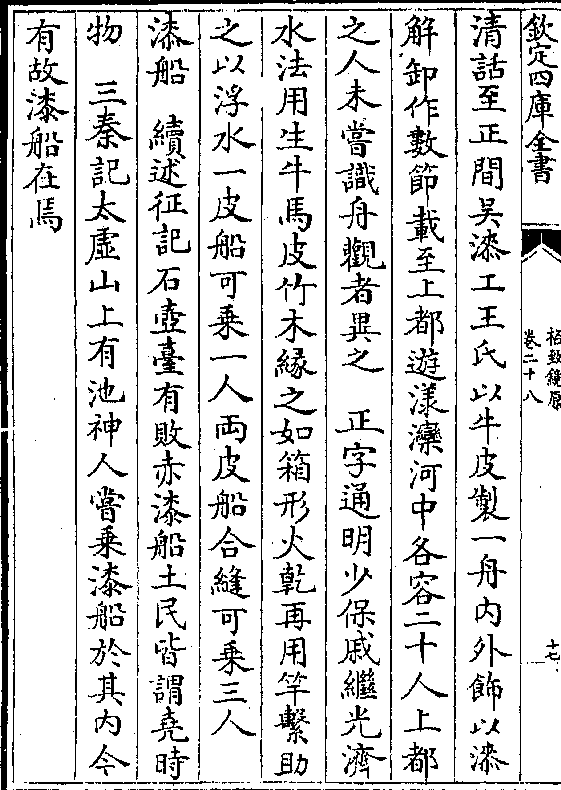 欽定四庫全書
格致鏡原
卷二十八
十七
清話至正間吳漆工王氏以牛皮製一舟內外飾以漆
解卸作數節載至上都遊漾灤河中各容二十人上都
之人未嘗識舟觀者異之　正字通明少保戚繼光濟
水法用生牛馬皮竹木緣之如箱形火乾再用竿繫助
之以浮水一皮船可乘一人兩皮船合縫可乘三人
漆船　續述征記石壺臺有敗赤漆船土民皆謂堯時
物　三秦記太虛山上有池神人嘗乘漆船於其內今
有故漆船在焉